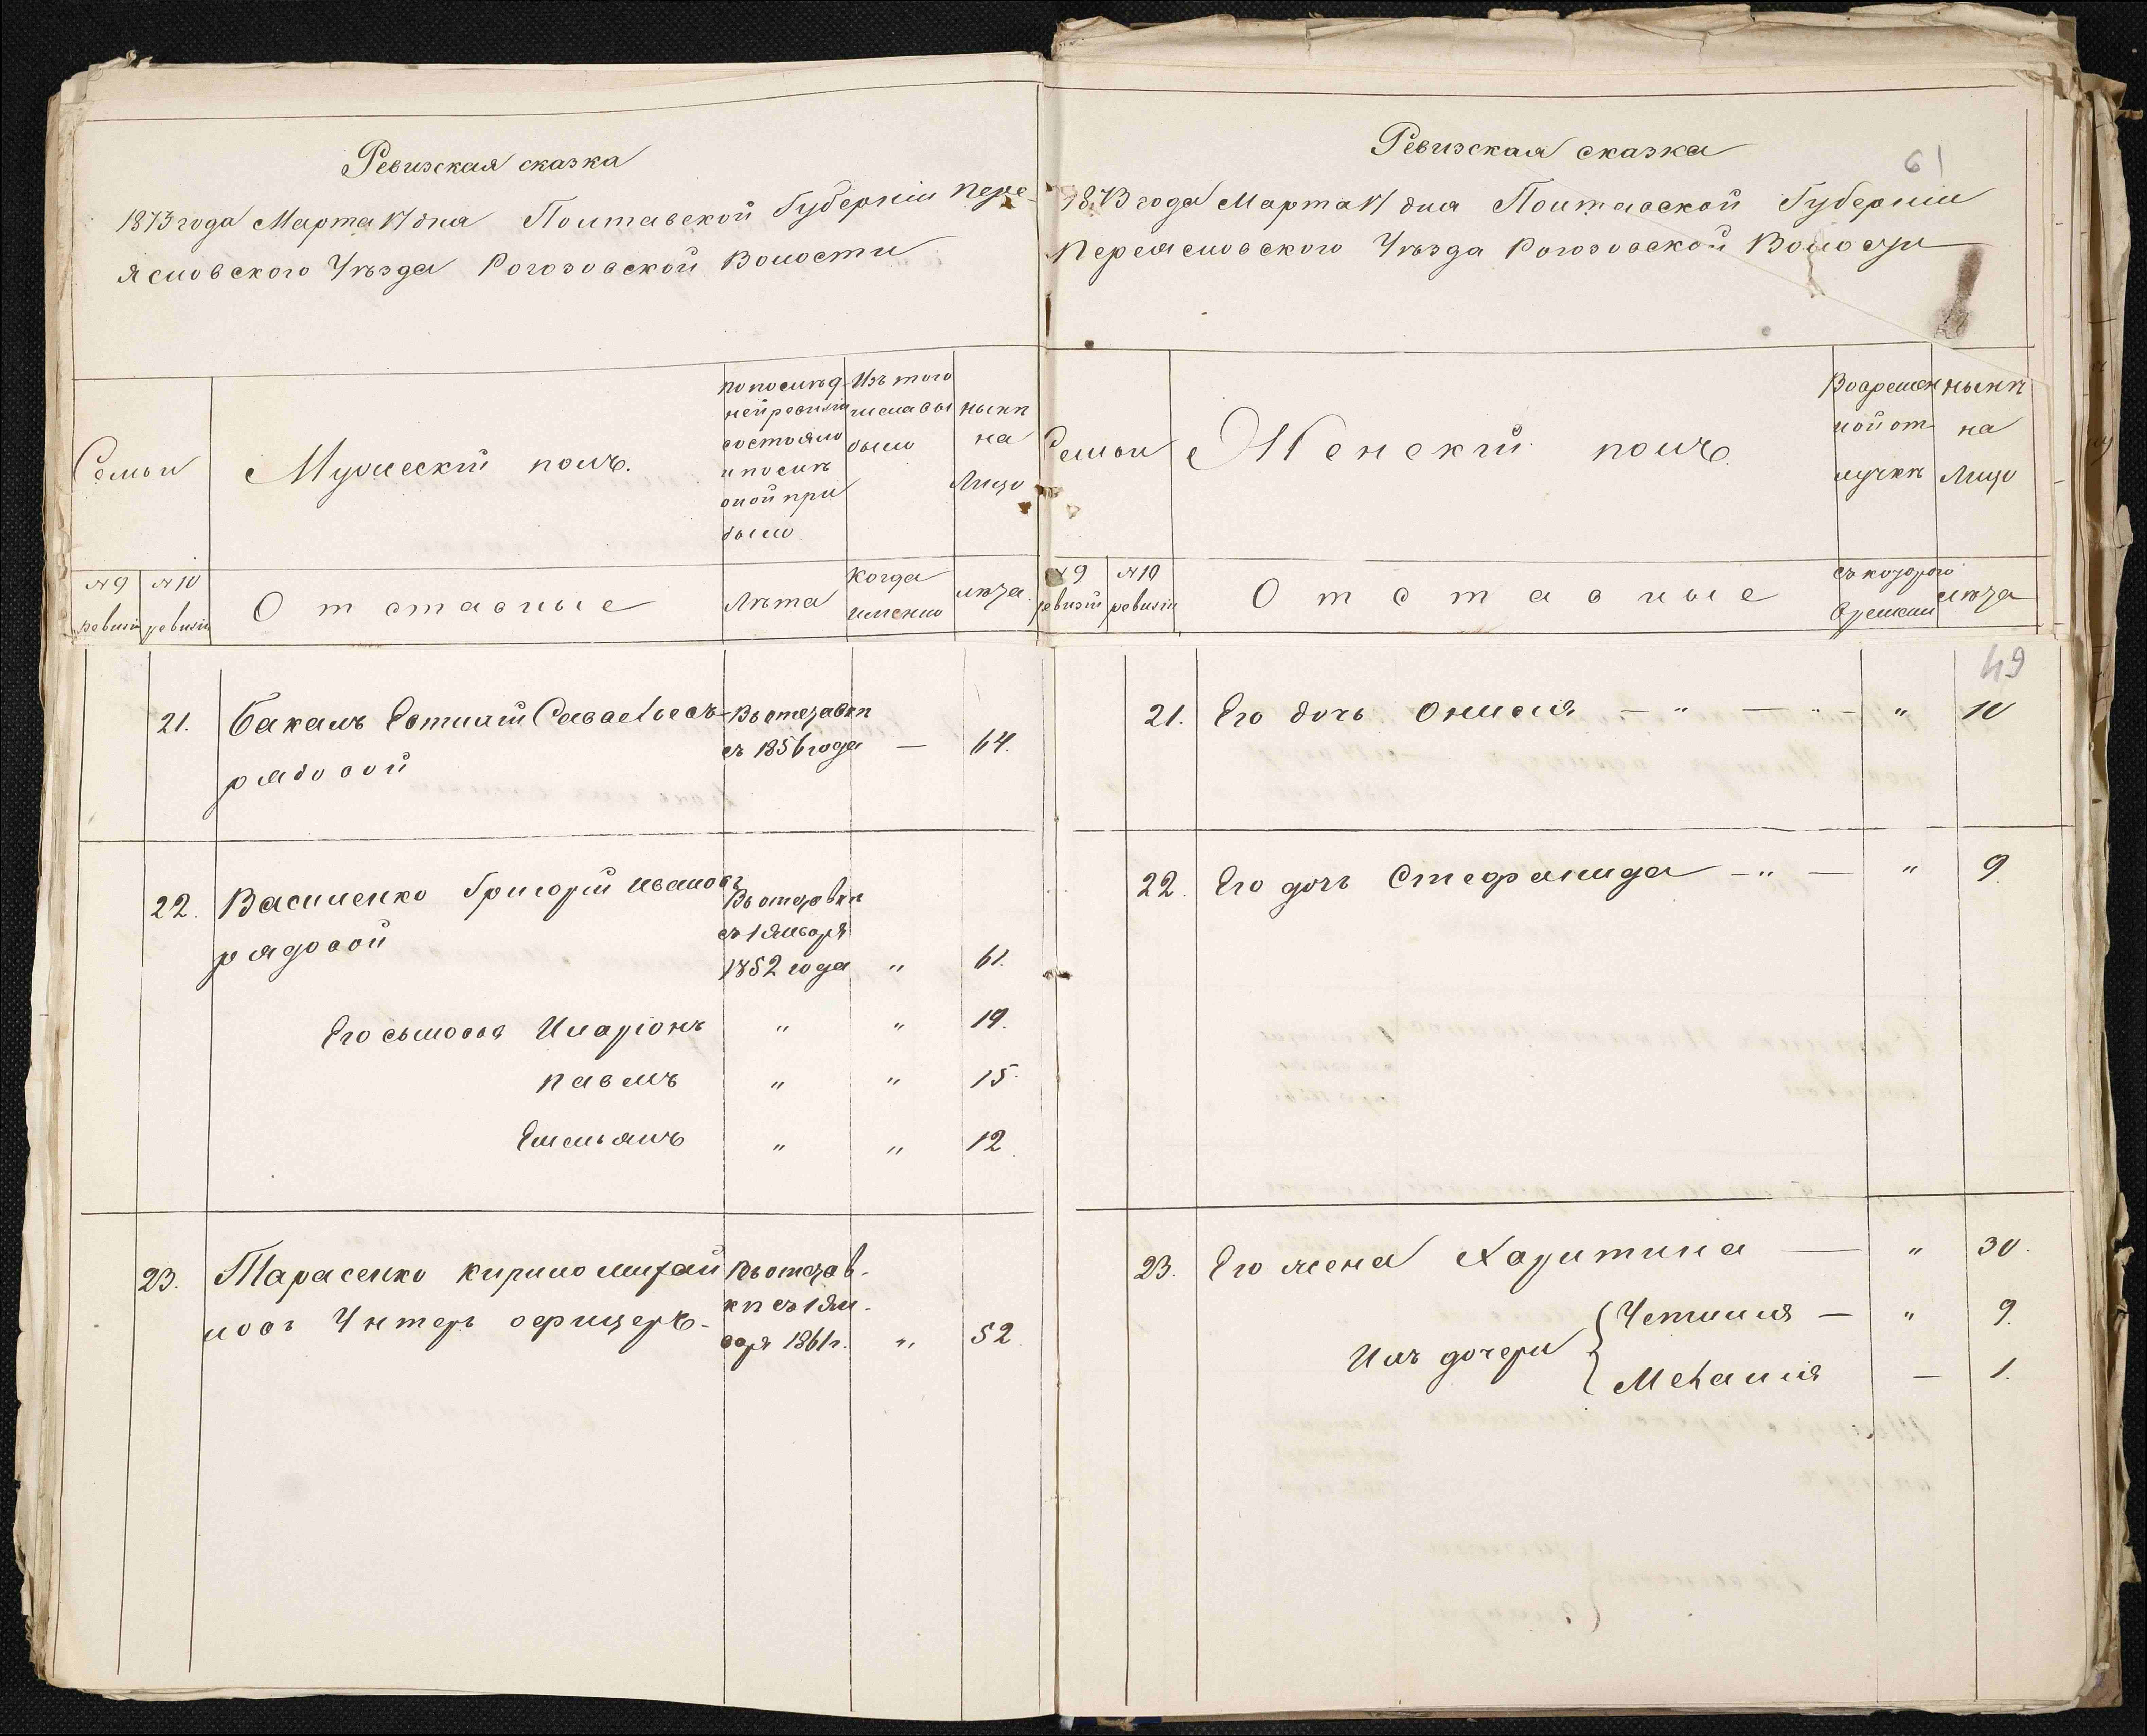 Ревизская сказка
1873 года Марта 17 дня Полтавской Губерніи Пере-
яславского Уѣзда Рогозовской Волости
Семьи
Мужескій полъ.
По послѣд-
ней ревизіи
состояло
и послѣ
оной при
было
Изъ того
числа вы
было
нынѣ
на
Лицо
№ 9
ревизіи
№ 10
ревизіи
Отставные
Лѣта
Когда
именно
лѣта
21. Бакалъ Евтихій Савельевъ
рядовой
Въ отставкѣ
съ 1856 года — 64.
22. Василенко Григорій Ивановъ
рядовой
Въ отставкѣ
съ 1 Января
1852 года " 61.
Его сыновья Иларіонъ " " 19.
Павелъ " " 15.
Емельянъ " " 12.
23. Тарасенко Кирило Михай
ловъ Унтеръ офицеръ-
Въ отстав-
кѣ съ 1 Ян-
варя 1861 г. " 52.
61
Ревизская сказка
1873 года Марта 17 дня Полтавской Губерніи
Переяславского Уѣзда Рогозовской Волости
Семьи
Женскій полъ.
Во времен
ной от
лучкѣ
нынѣ
на
Лицо
№ 9
ревизіи
№ 10
ревизіи
Отставные
съ которого
времени
лѣта
49
21. Его дочь Онисія — " — " — " 10
22. Его дочь Стефанида — " — " 9.
23. Его жена Харитина — " 30.
Ихъ дочери { Устинія — " 9.
Меланія — 1.